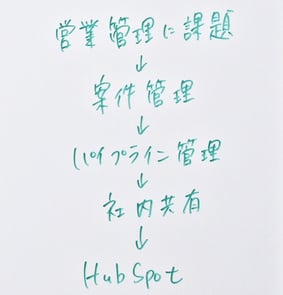 営業管理に課題
↓
案件管理
↓
パイプライン管理
↓
社内共有
↓
HubSpot